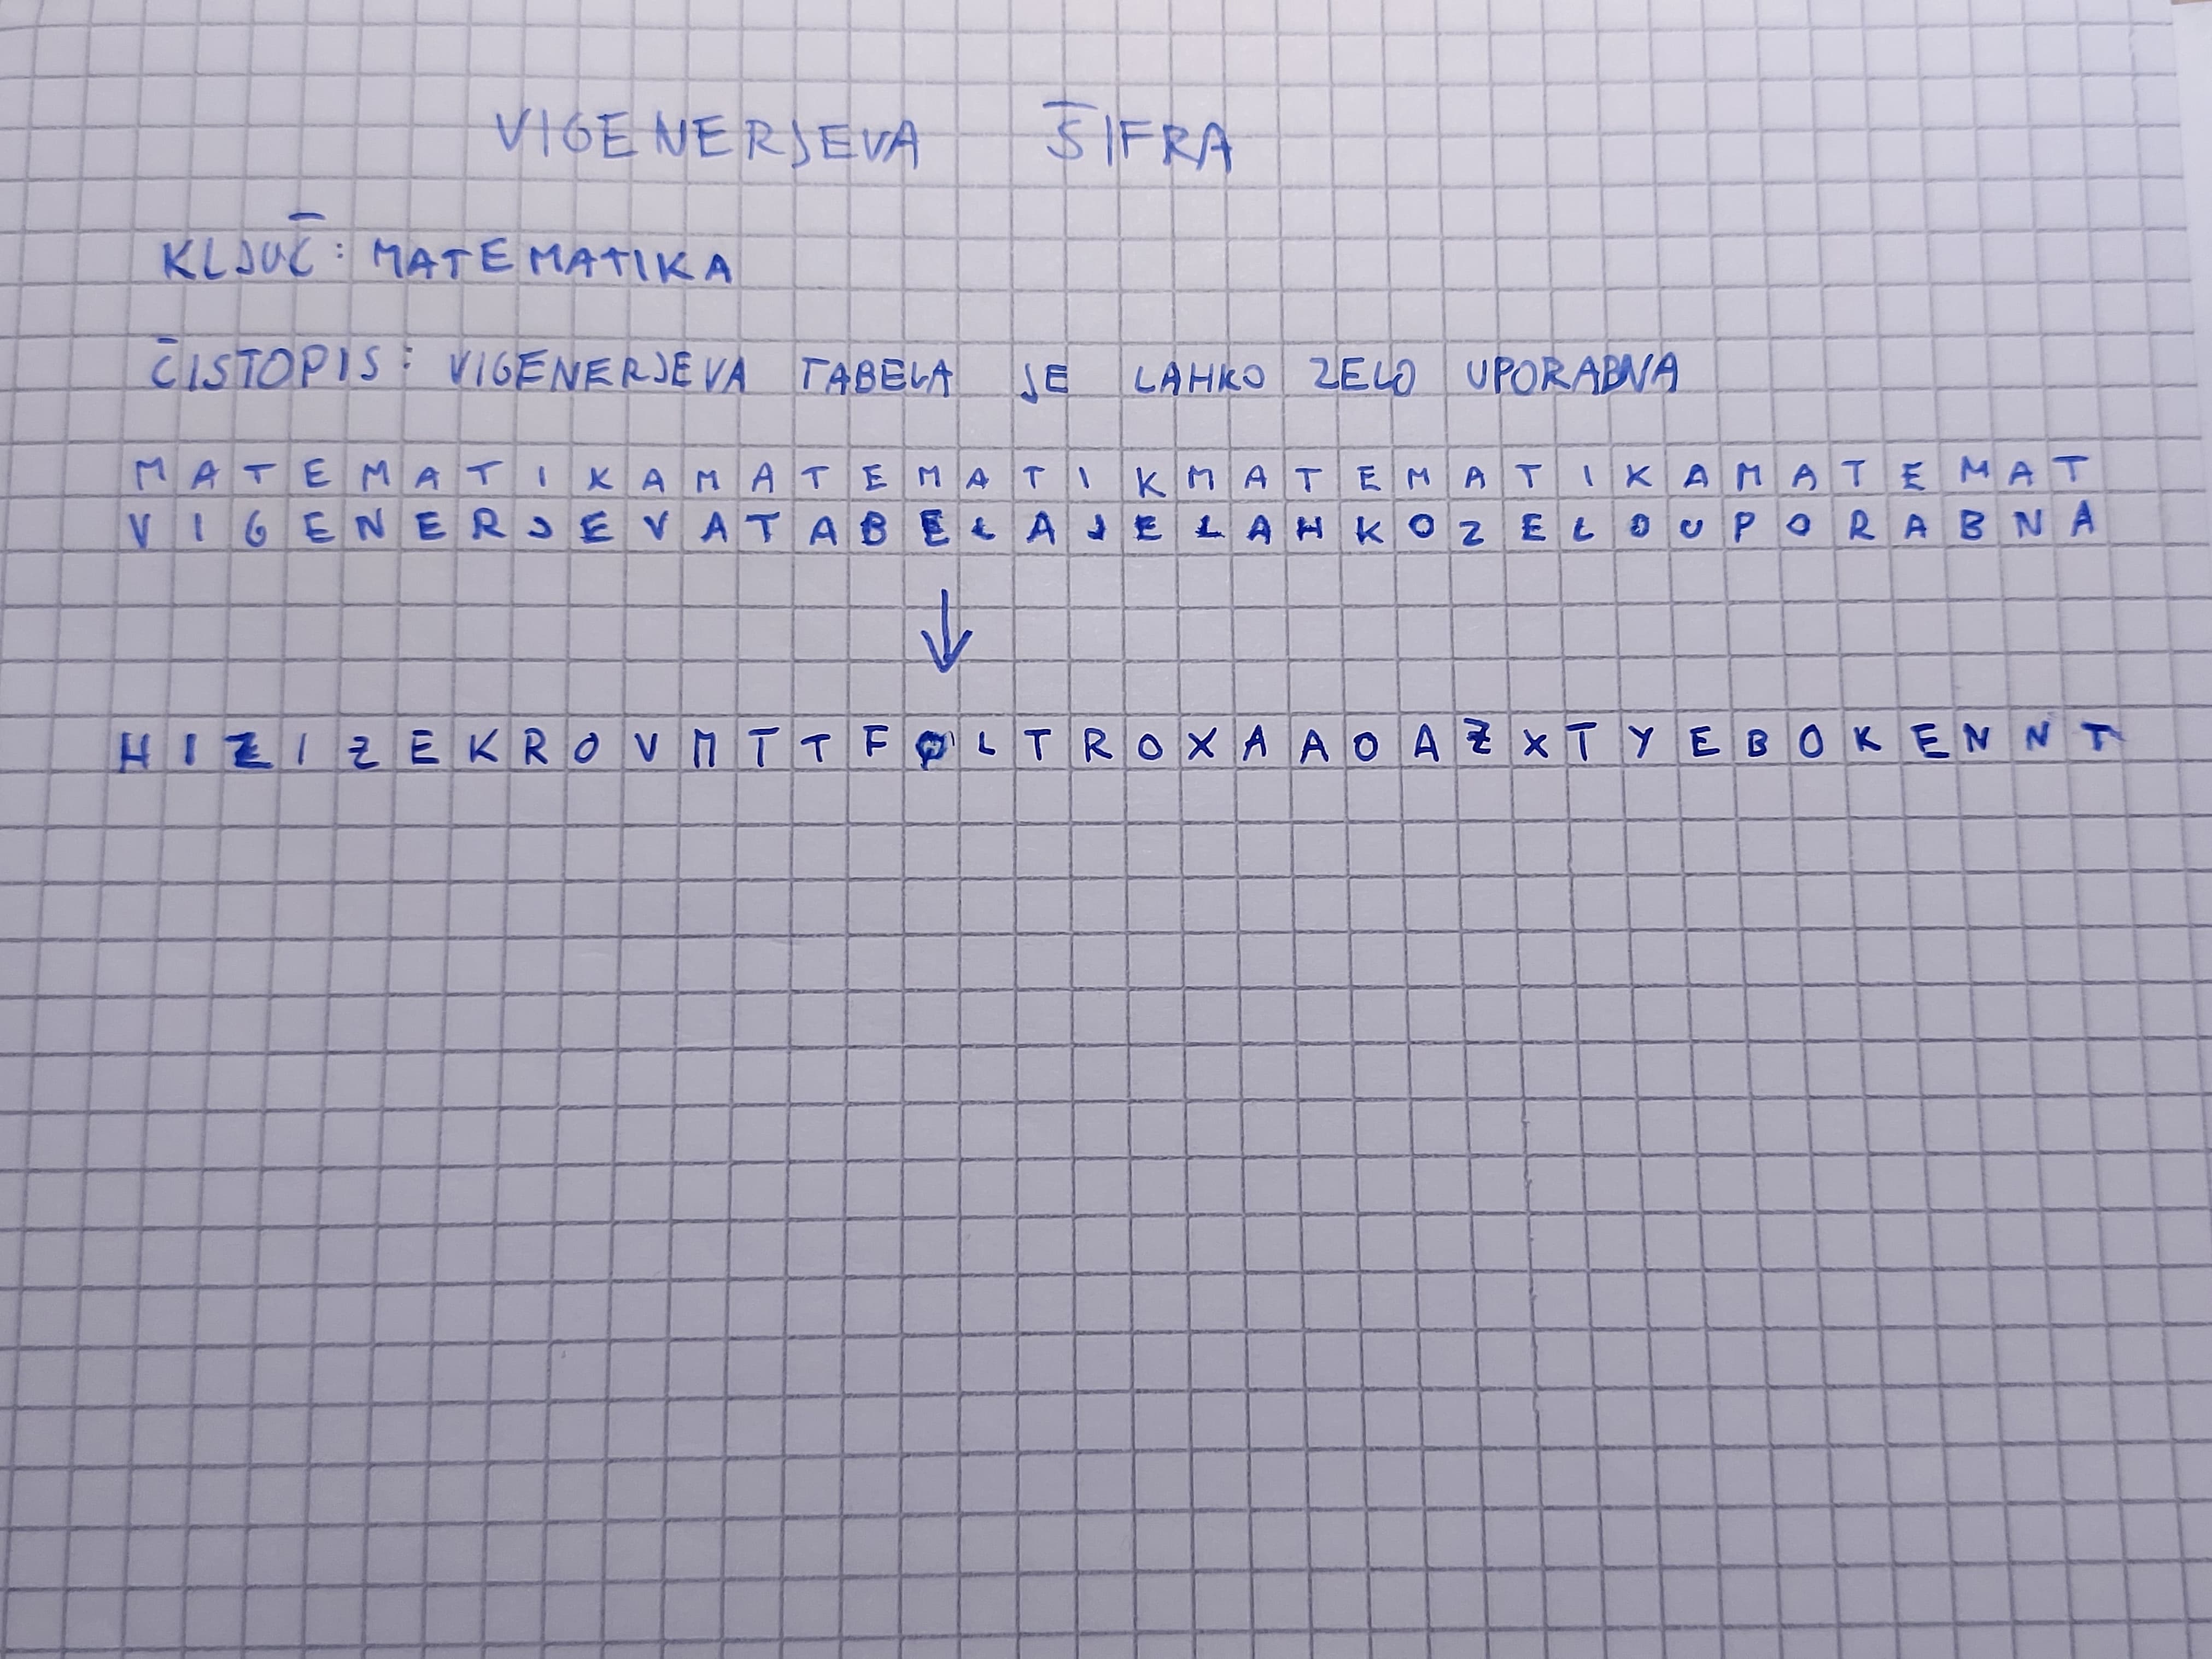 VIGENERJEVA ŠIFRA
KLJUČ: MATEMATIKA
ČISTOPIS: VIGENERJEVA TABELA JE LAHKO ZELO UPORABNA
M A T E M A T I K A M A T E M A T I K M A T E M A T I K A M A T E M A T
V I G E N E R J E V A T A B E L A J E L A H K O Z E L O U P O R A B N A
H I Z I Z E K R O V M T T F Q L T R O X A A O A Z X T Y E B O K E N N T